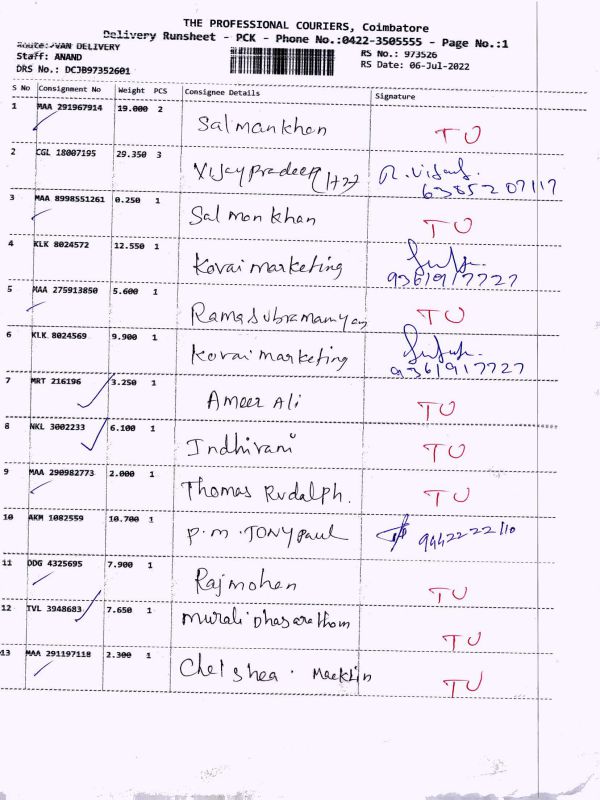 THE PROFESSIONAL COURIERS, Coimbatore
Delivery Runsheet - PCK - Phone No.:0422-3505555 - Page No.:1
Route: VAN DELIVERY
RS No.: 973526
Staff: ANAND
RS Date: 06-Jul-2022
DRS No.: DCJB97352601
S No Consignment No Weight PCS Consignee Details Signature
1 MAA 291967914 19.000 2 Salmankhan TO
2 CGL 18007195 29.350 3 Vijaypradeep R. Vijay
6385207117
3 MAA 8998551261 0.250 1 Salmankhan TO
4 KLK 8024572 12.550 1 Kovai marketing 9361917727
5 MAA 275913850 5.600 1 Ramasubramanyan TO
6 KLK 8024569 9.900 1 Kovai marketing 9361917727
7 MRT 216196 3.250 1 Ameer Ali TO
8 NKL 3002233 6.100 1 Indhirani TO
9 MAA 290982773 2.000 1 Thomas Rudalph. TO
10 AKM 1082559 10.700 1 P.m.TONY paul 9442222110
11 DDG 4325695 7.900 1 Rajmohan TO
12 TVL 3948683 7.650 1 murali Dhasarathom TO
13 MAA 291197118 2.300 1 Chelshea. TO